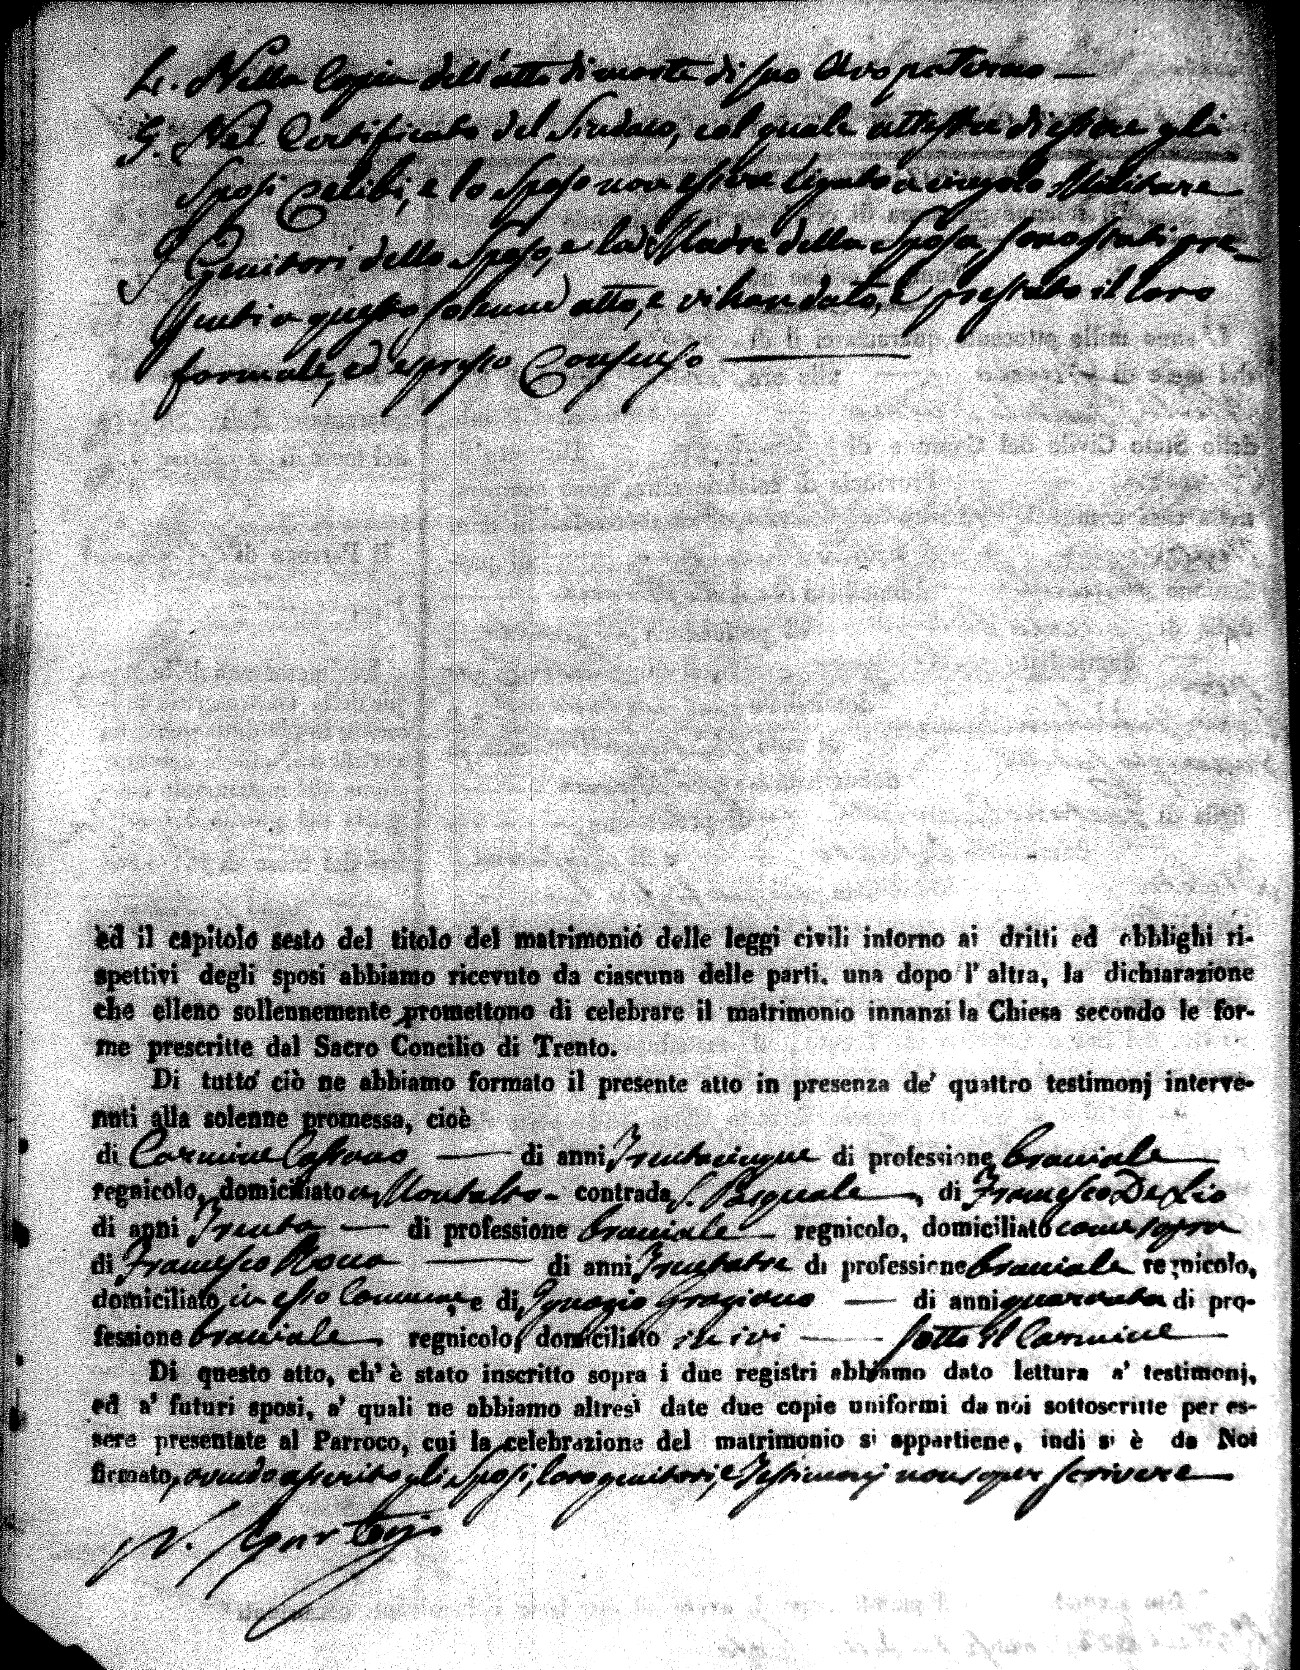 4. Nella Copia dell'atto di morte di suo Avo paterno —
5. Nel Certificato del Sindaco, col quale attesta di essere gli
Sposi Celibi, e lo Sposo non essere ligato a vincolo Militare
I Genitori dello Sposo, e la Madre della Sposa, sono stati pre-
senti a questo solenne atto, e vi han dato, e prestato il loro
formale, ed espresso Consenso —
ed il capitolo sesto del titolo del matrimonio delle leggi civili intorno ai dritti ed obblighi ri-
spettivi degli sposi abbiamo ricevuto da ciascuna delle parti, una dopo l'altra, la dichiarazione
che elleno sollennemente promettono di celebrare il matrimonio innanzi la Chiesa secondo le for-
me prescritte dal Sacro Concilio di Trento.
Di tutto ciò ne abbiamo formato il presente atto in presenza de' quattro testimonj interve-
nuti alla solenne promessa, cioè
di Carmine — di anni Trentacinque di professione Bracciale —
regnicolo, domiciliato a Montalto - contrada S. Pasquale —, di Francesco De Lio
di anni Trenta — di professione Bracciale — regnicolo, domiciliato come sopra
di Francesco Rocca — di anni Trentatre di professione Bracciale regnicolo,
domiciliato in esso Comune, e di Ignazio Graziano — di anni quaranta di pro-
fessione Bracciale, regnicolo, domiciliato ivi — sotto il Carmine —
Di questo atto, ch' è stato inscritto sopra i due registri abbiamo dato lettura a' testimonj,
ed a' futuri sposi, a' quali ne abbiamo altresì date due copie uniformi da noi sottoscritte per es-
sere presentate al Parroco, cui la celebrazione del matrimonio si appartiene, indi si è da Noi
firmato, avendo asserito gli Sposi, loro genitori, e Testimonj non saper scrivere —